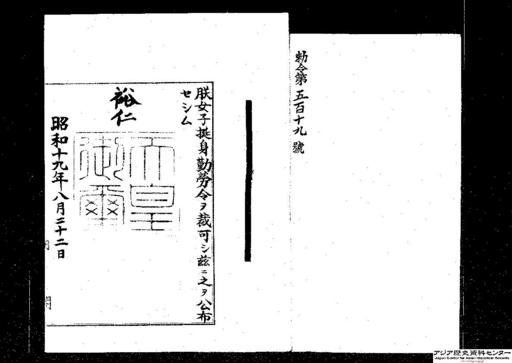 勅令第五百十九號
朕女子挺身勤勞令ヲ裁可シ茲ニ之ヲ公布
セシム
裕仁
天皇
御璽
昭和十九年八月二十二日
アジア歴史資料センター
Japan Center for Asian Historical Records